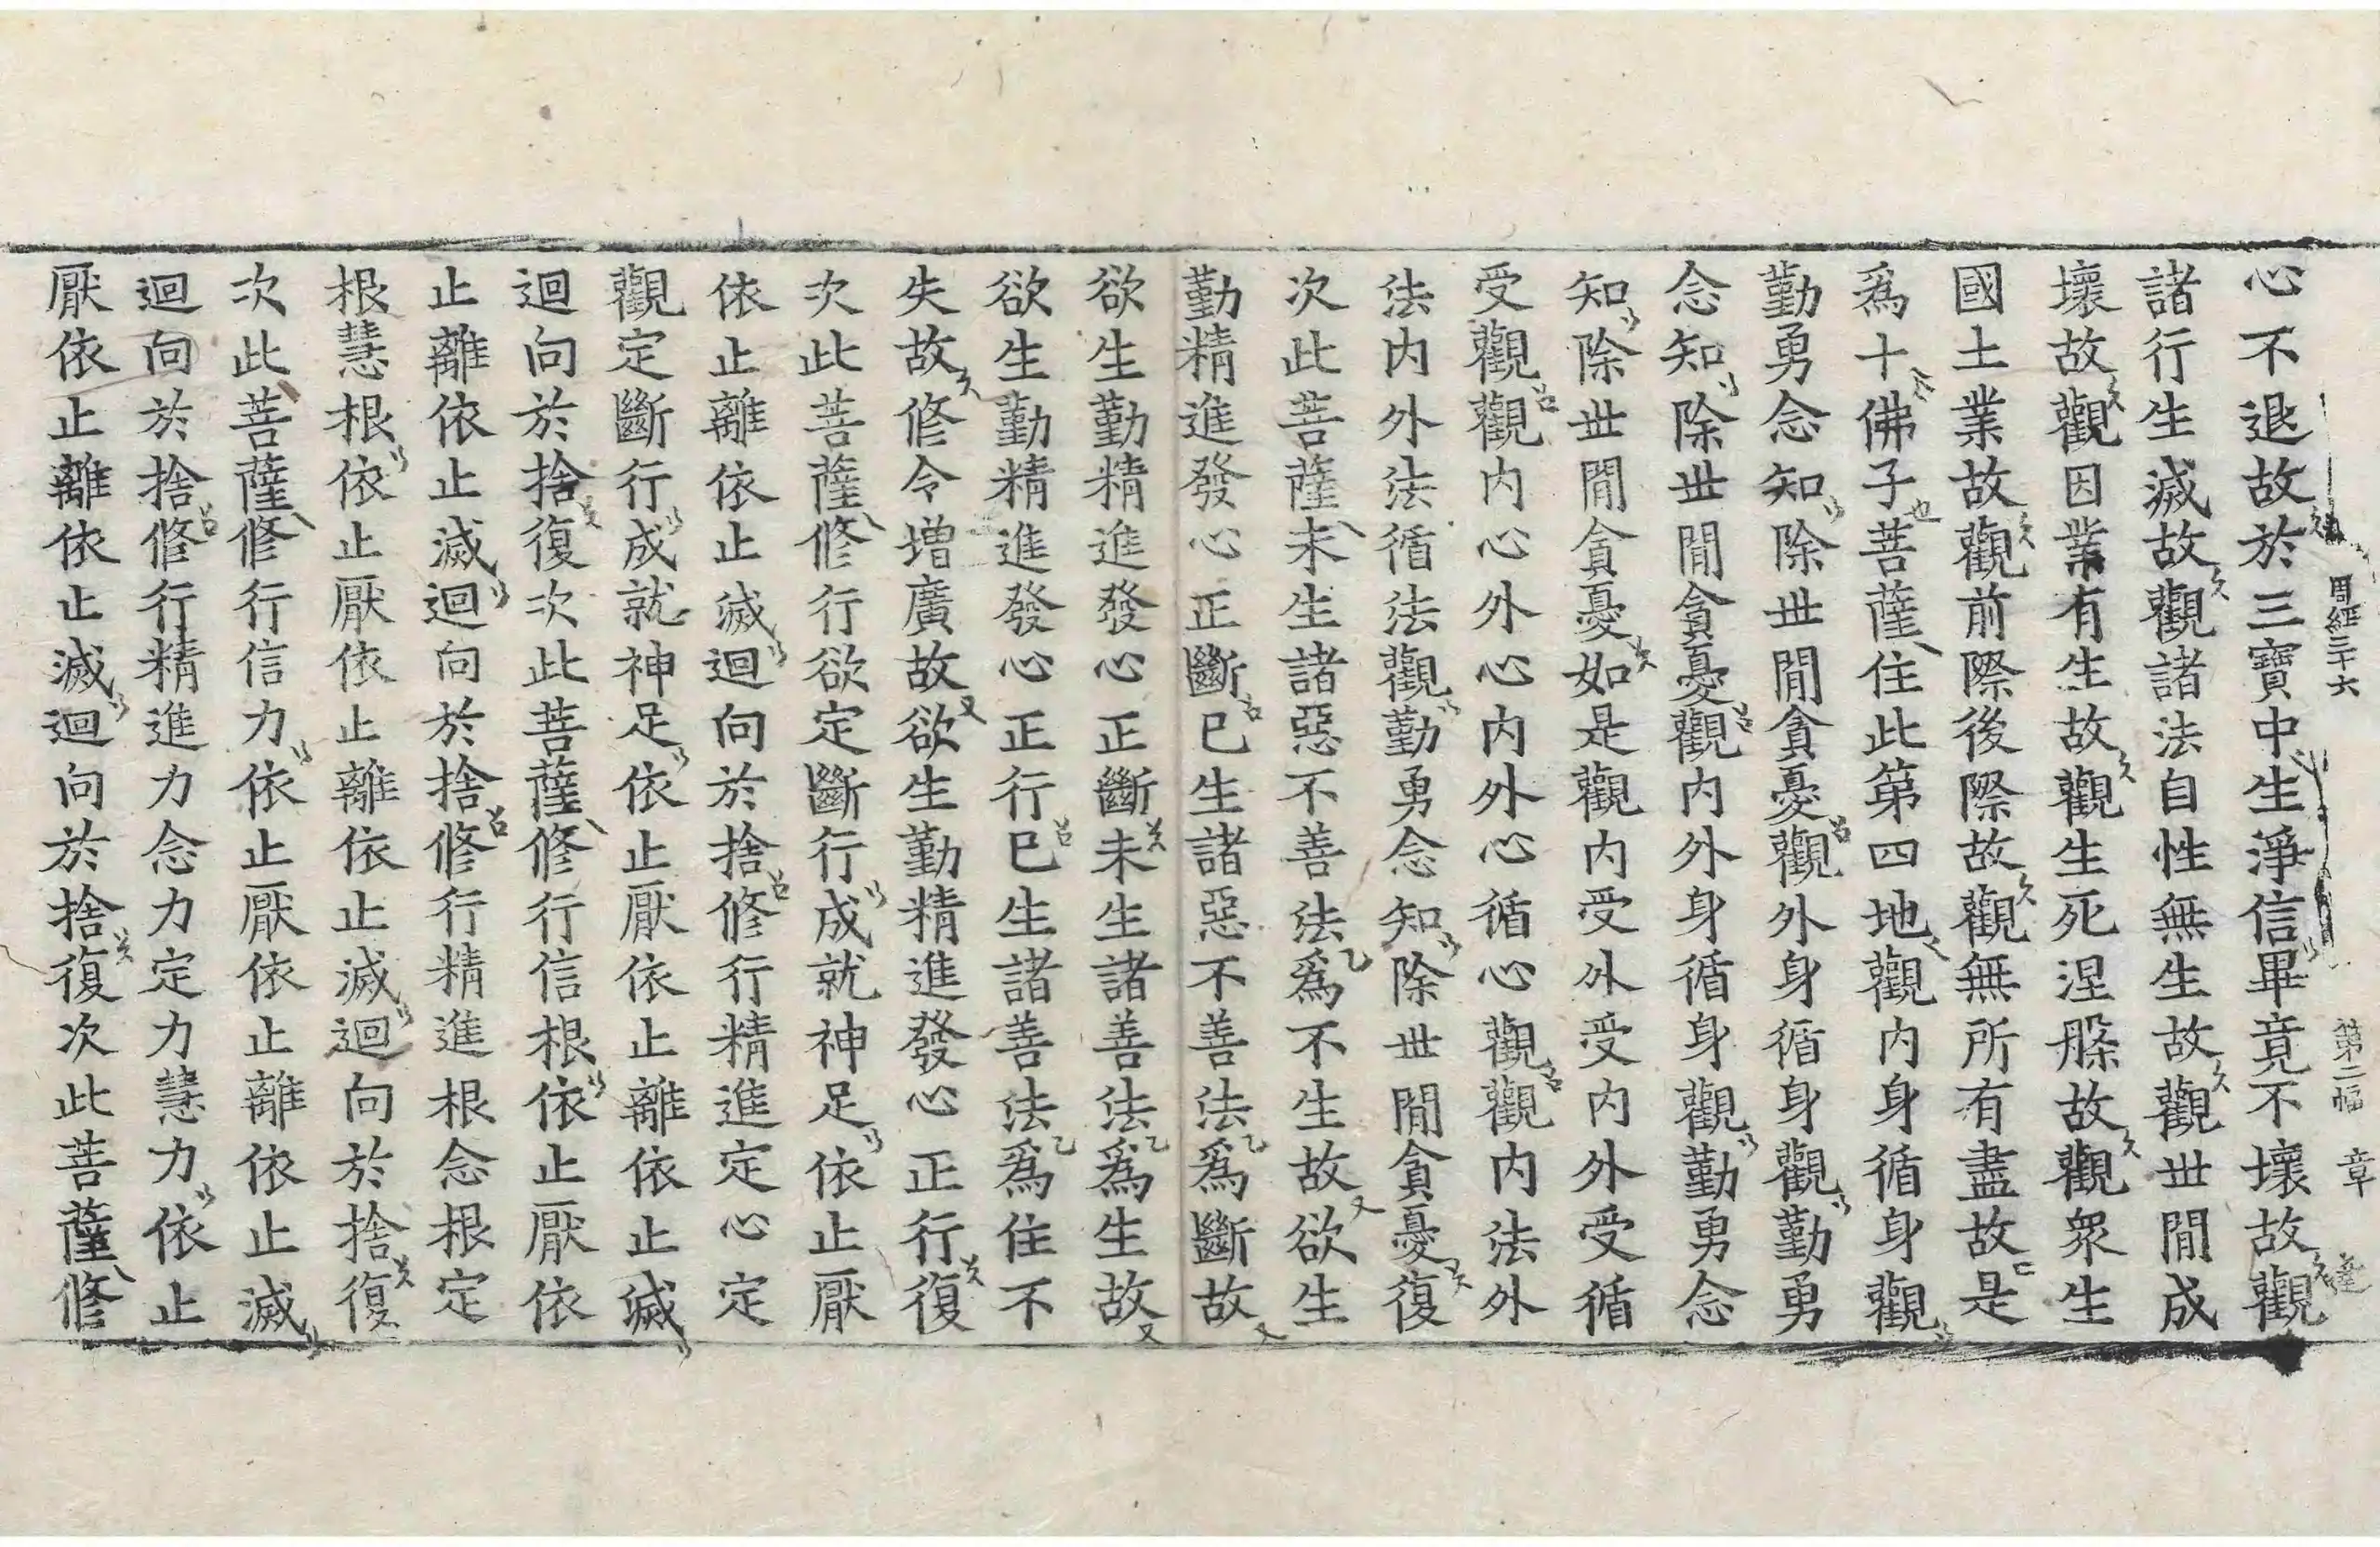 周經三十六 第二幅 章
心不退故於三寶中生淨信畢竟不壞故觀
諸行生滅故觀諸法自性無生故觀世間成
壞故觀因業有生故觀生死涅槃故觀衆生
國土業故觀前際後際故觀無所有盡故是
爲十佛子菩薩住此第四地觀内身循身觀
勤勇念知除世間貪憂觀外身循身觀勤勇
念知除世間貪憂觀内外身循身觀勤勇念
知除世間貪憂如是觀内受外受内外受循
受觀觀内心外心内外心循心觀觀内法外
法内外法循法觀勤勇念知除世間貪憂復
次此菩薩未生諸惡不善法爲不生故欲生
勤精進發心正斷已生諸惡不善法爲斷故
欲生勤精進發心正斷未生諸善法爲生故
欲生勤精進發心正行已生諸善法爲住不
失故修令増廣故欲生勤精進發心正行復
次此菩薩修行欲定斷行成就神足依止厭
依止離依止滅迴向於捨修行精進定心定
觀定斷行成就神足依止厭依止離依止滅
迴向於捨復次此菩薩修行信根依止厭依
止離依止滅迴向於捨修行精進根念根定
根慧根依止厭依止離依止滅迴向於捨復
次此菩薩修行信力依止厭依止離依止滅
迴向於捨修行精進力念力定力慧力依止
厭依止離依止滅迴向於捨復次此菩薩修